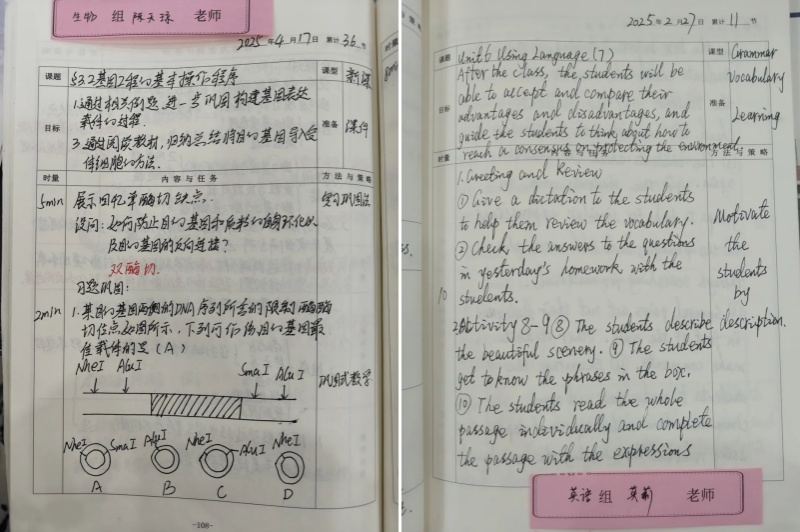 生物 组 陈天琼 老师
2025年4月17日 累计36节
课题
§3.2基因工程的基本操作程序
课型
新课
目标
1.通过相关例题,进一步巩固构建基因表达
载体的过程.
3.通过阅读教材,归纳总结将目的基因导入受
体细胞的方法.
准备
课件
时量
内容与任务
方法与策略
5min
展示回忆单酶切缺点.
复习巩固法
设问:如何防止目的基因和质粒的自身环化以
及目的基因的反向连接?
双酶切.
习题巩固:
2min
1.某目的基因两侧的DNA序列所含的限制酶酶
切位点如图所示,下列可作为目的基因最
佳载体的是(A)
NheI AluI
SmaI AluI
巩固式教学
NheI SmaI AluI NheI AluI NheI
A B C D
-108-
2025年2月27日 累计11节
课题
Unit 6 Using Language (7)
After the class, the students will be
able to accept and compare their
advantages and disadvantages, and
guide the students to think about how to
reach a consensus on protecting the environment.
课型
Grammar
Vocabulary
准备
Learning
目标
时量
内容与任务
方法与策略
1. Greeting and Review
① Give a dictation to the students
to help them review the vocabulary.
② Check the answers to the questions
in yesterday's homework with the
students.
10
Motivate
the
students
by
description.
2. Activity 8-9 ⑧ The students describe
the beautiful scenery. ⑨ The students
get to know the phrases in the box.
⑩ The students read the whole
passage individually and complete
the passage with the expressions
英语 组 莫莉 老师